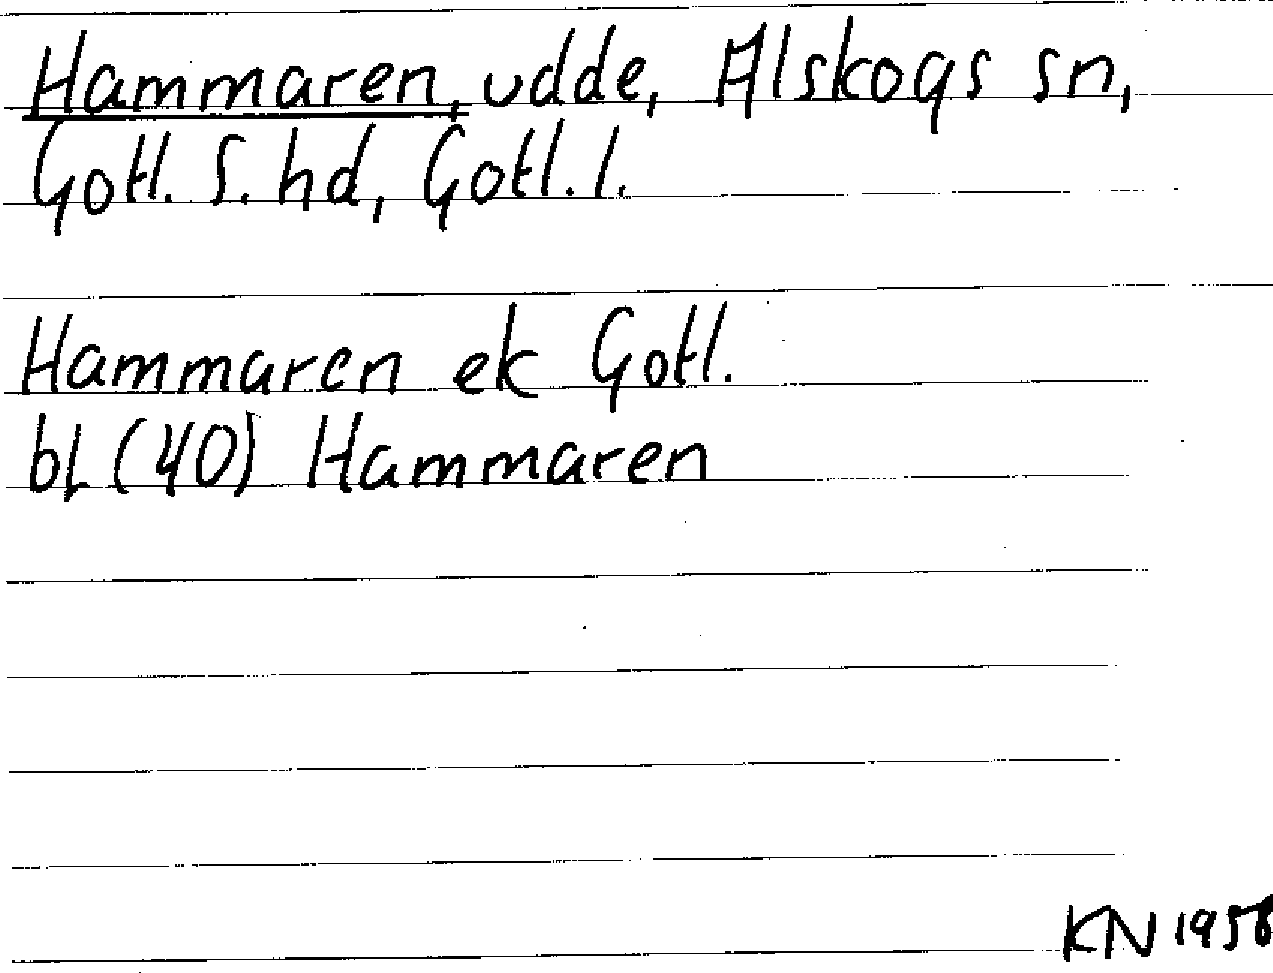 Hammaren, udde, Alskogs sn,
Gotl. S. hd, Gotl. l.
Hammaren ek Gotl.
bl (40) Hammaren
KN 1958